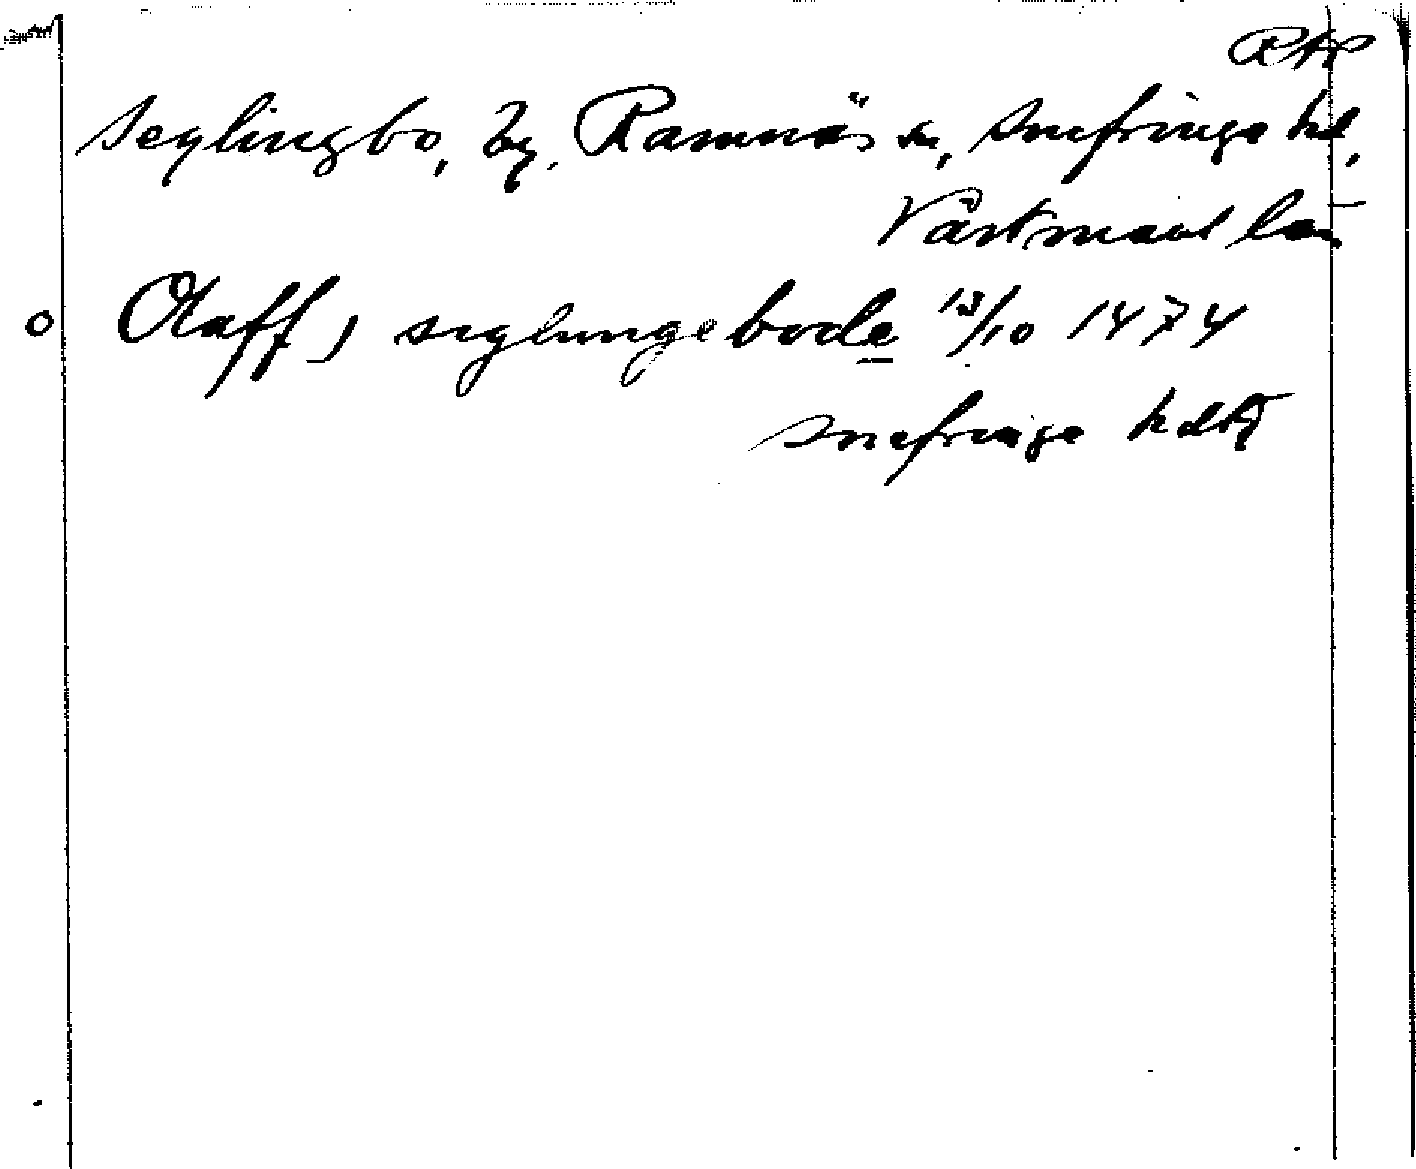 RAP
Seglingbo, by, Ramnäs sn, Snefringe hd,
Västmanl län
O Olaff j seglungebode 13/10 1474
Snefringe hdR